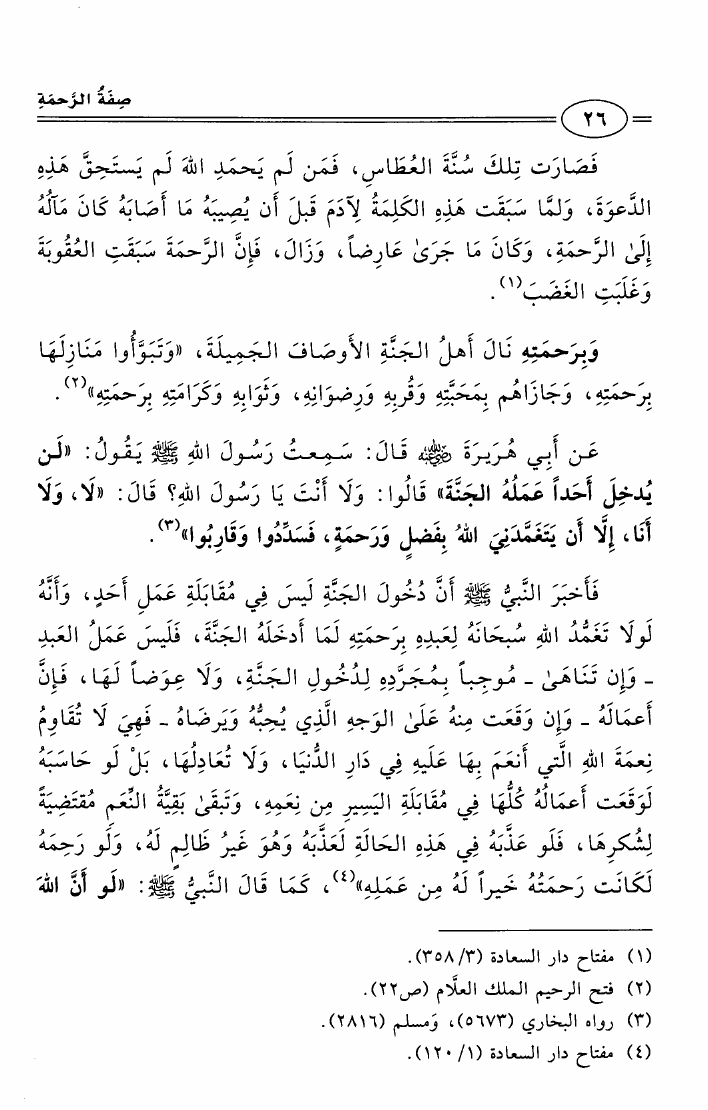 صِفَةُ الرَّحمَةِ
٢٦
فَصَارَت تِلكَ سُنَّةَ العُطَاسِ، فَمَن لَم يَحمَدِ اللهَ لَم يَستَحِقَّ هَذِهِ
الدَّعوَةَ، وَلمَّا سَبَقَت هَذِهِ الكَلِمَةُ لِآدَمَ قَبلَ أَن يُصِيبَهُ مَا أَصَابَهُ كَانَ مَآلُهُ
إِلَىٰ الرَّحمَةِ، وَكَانَ مَا جَرَىٰ عَارِضاً، وَزَالَ، فَإِنَّ الرَّحمَةَ سَبَقَتِ العُقُوبَةَ
وَغَلَبَتِ الغَضَبَ(١).
وَبِرَحمَتِهِ نَالَ أَهلُ الجَنَّةِ الأَوصَافَ الجَمِيلَةَ، «وَتَبَوَّأُوا مَنَازِلَهَا
بِرَحمَتِهِ، وَجَازَاهُم بِمَحَبَّتِهِ وَقُربِهِ وَرِضوَانِهِ، وَثَوَابِهِ وَكَرَامَتِهِ بِرَحمَتِهِ»(٢).
عَن أَبِي هُرَيرَةَ رضي الله عنه قَالَ: سَمِعتُ رَسُولَ اللهِ ﷺ يَقُولُ: «لَن
يُدخِلَ أَحَداً عَمَلُهُ الجَنَّةَ» قَالُوا: وَلَا أَنْتَ يَا رَسُولَ اللهِ؟ قَالَ: «لَا، وَلَا
أَنَا، إِلَّا أَن يَتَغَمَّدَنِيَ اللهُ بِفَضلٍ وَرَحمَةٍ، فَسَدِّدُوا وَقَارِبُوا»(٣).
فَأَخبَرَ النَّبِيُّ ﷺ أَنَّ دُخُولَ الجَنَّةِ لَيسَ فِي مُقَابَلَةِ عَمَلِ أَحَدٍ، وَأَنَّهُ
لَولَا تَغَمُّدُ اللهِ سُبحَانَهُ لِعَبدِهِ بِرَحمَتِهِ لَمَا أَدخَلَهُ الجَنَّةَ، فَلَيسَ عَمَلُ العَبدِ
ـ وَإِن تَنَاهَىٰ ـ مُوجِباً بِمُجَرَّدِهِ لِدُخُولِ الجَنَّةِ، وَلَا عِوَضاً لَهَا، فَإِنَّ
أَعمَالَهُ ـ وَإِن وَقَعَت مِنهُ عَلَىٰ الوَجهِ الَّذِي يُحِبُّهُ وَيَرضَاهُ ـ فَهِيَ لَا تُقَاوِمُ
نِعمَةَ اللهِ الَّتِي أَنعَمَ بِهَا عَلَيهِ فِي دَارِ الدُّنيَا، وَلَا تُعَادِلُهَا، بَلْ لَو حَاسَبَهُ
لَوَقَعَت أَعمَالُهُ كُلُّهَا فِي مُقَابَلَةِ اليَسِيرِ مِن نِعَمِهِ، وَتَبقَىٰ بَقِيَّةُ النِّعَمِ مُقتَضِيَةً
لِشُكرِهَا، فَلَو عَذَّبَهُ فِي هَذِهِ الحَالَةِ لَعَذَّبَهُ وَهُوَ غَيرُ ظَالِمٍ لَهُ، وَلَو رَحِمَهُ
لَكَانَت رَحمَتُهُ خَيراً لَهُ مِن عَمَلِهِ»(٤)، كَمَا قَالَ النَّبِيُّ ﷺ: «لَو أَنَّ اللهَ
(١) مفتاح دار السعادة (٣٥٨/٣).
(٢) فتح الرحيم الملك العلَّام (ص٢٢).
(٣) رواه البخاري (٥٦٧٣)، وَمسلم (٢٨١٦).
(٤) مفتاح دار السعادة (١٢٠/١).